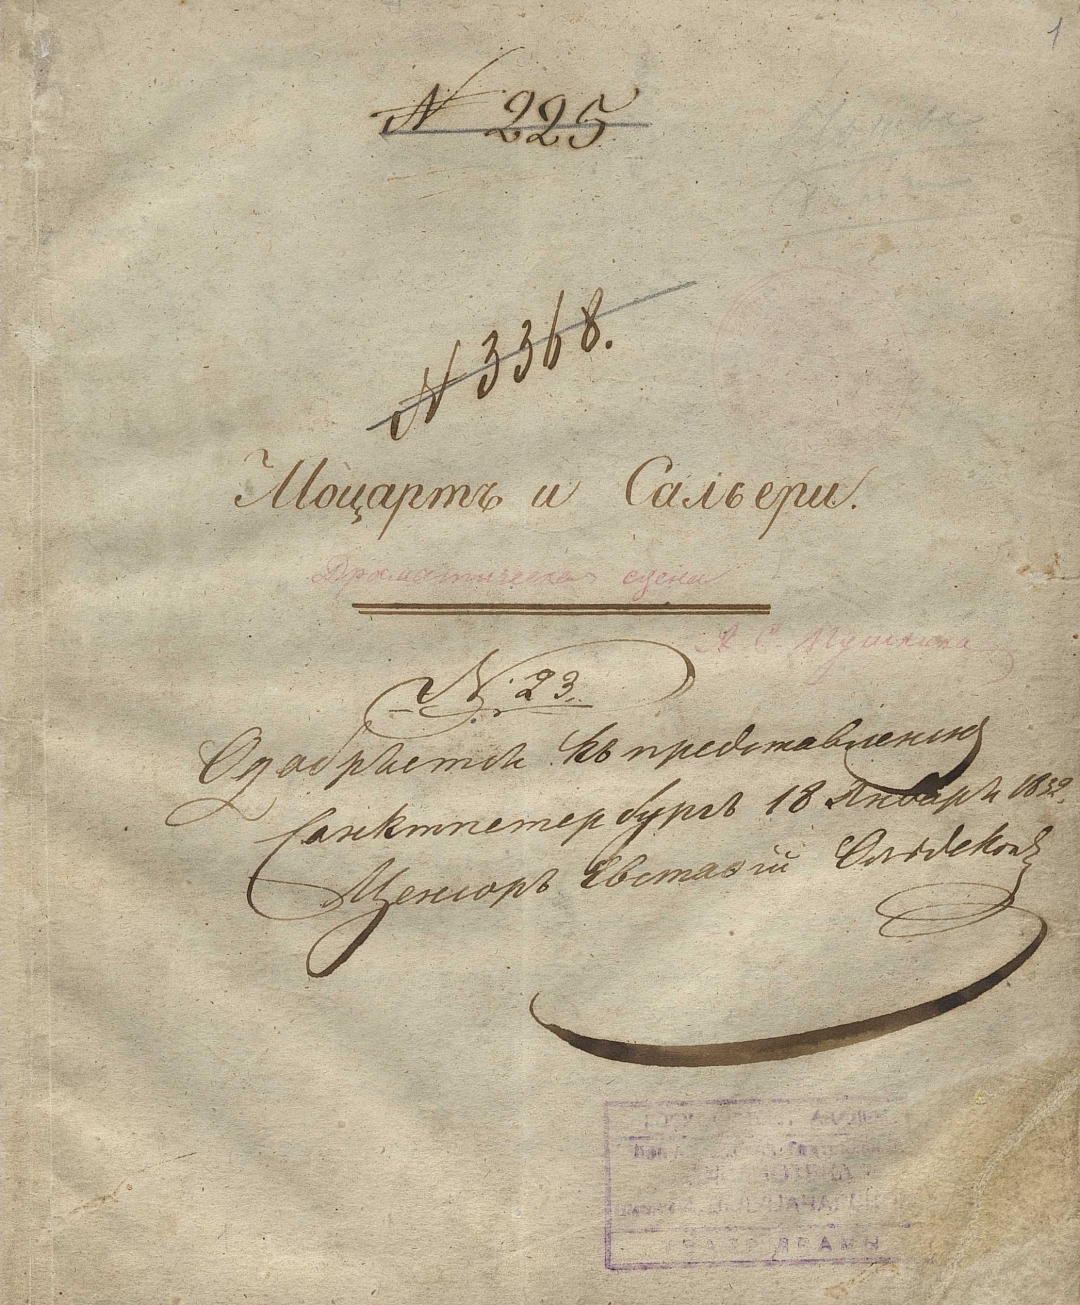 1
№ 225
№ 3368.
Моцартъ и Сальери.
Драматическая сцена
А. С. Пушкина
№. 23.
Одобряется къ представленію
Санктпетербургъ 18 Января 1832.
Ценсоръ Евстафій Ольдекопъ